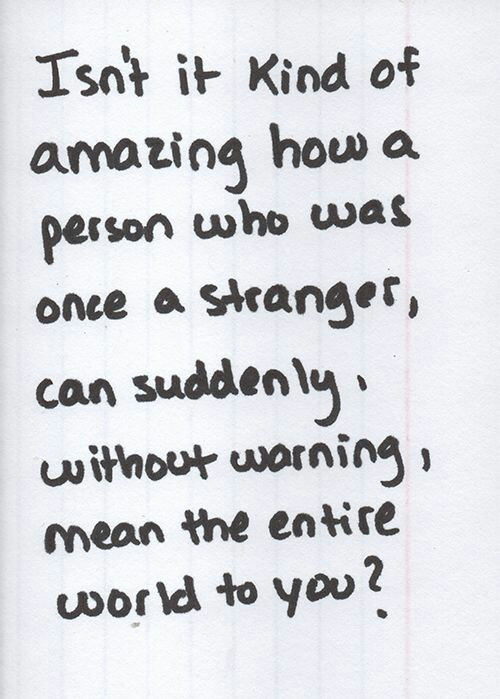 Isn't it kind of
amazing how a
person who was
once a stranger,
can suddenly,
without warning,
mean the entire
world to you?